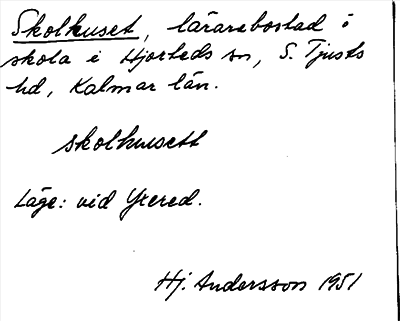 Skolhuset, lärarebostad i
skola i Hjorteds sn, S. Tjusts
hd, Kalmar län.
skolhusett
Läge: vid Ytered.
Hj. Andersson 1951